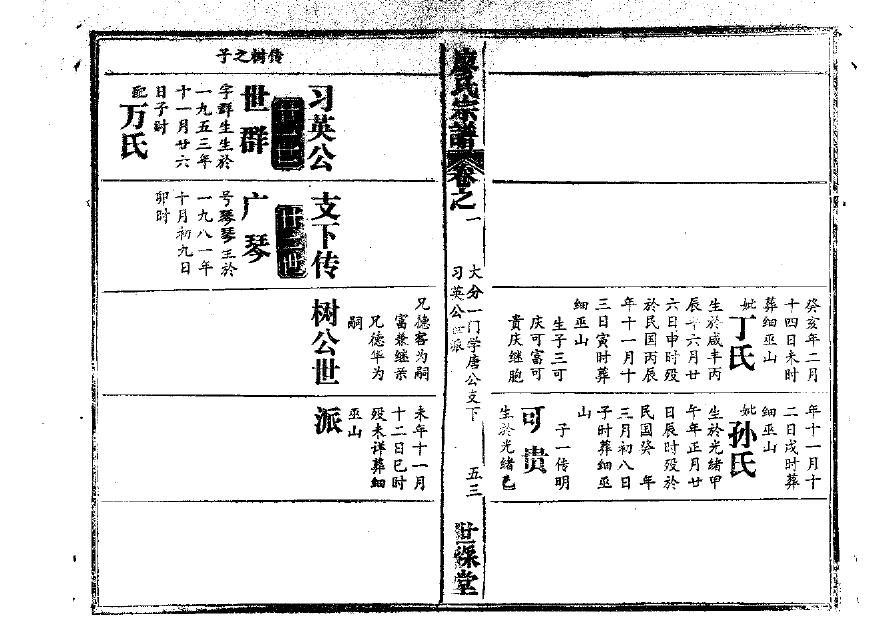 癸亥年二月
十四日未时
葬细巫山
妣丁氏
生於咸丰丙
辰年六月廿
六日申时殁
於民国丙辰
年十一月十
三日寅时葬
细巫山
生子三可
庆可富可
贵庆继胞
年十一月十
二日戌时葬
细巫山
妣孙氏
生於光绪甲
午年正月廿
日辰时殁於
民国癸 年
三月初八日
子时葬细巫
山
子一传明
可贵
生於光绪己
廖氏宗譜
卷之一
大分一门学唐公支下
习英公世派
五三
世綵堂
习英公支下传树公世派
传树之子
世群
字群生生於
一九五三年
十一月廿六
日子时
配万氏
广琴
号琴琴王於
一九八一年
十月初九日
卯时
兄德容为嗣
富兼继
兄德华为
嗣
未年十一月
十二日巳时
殁未详葬细
巫山